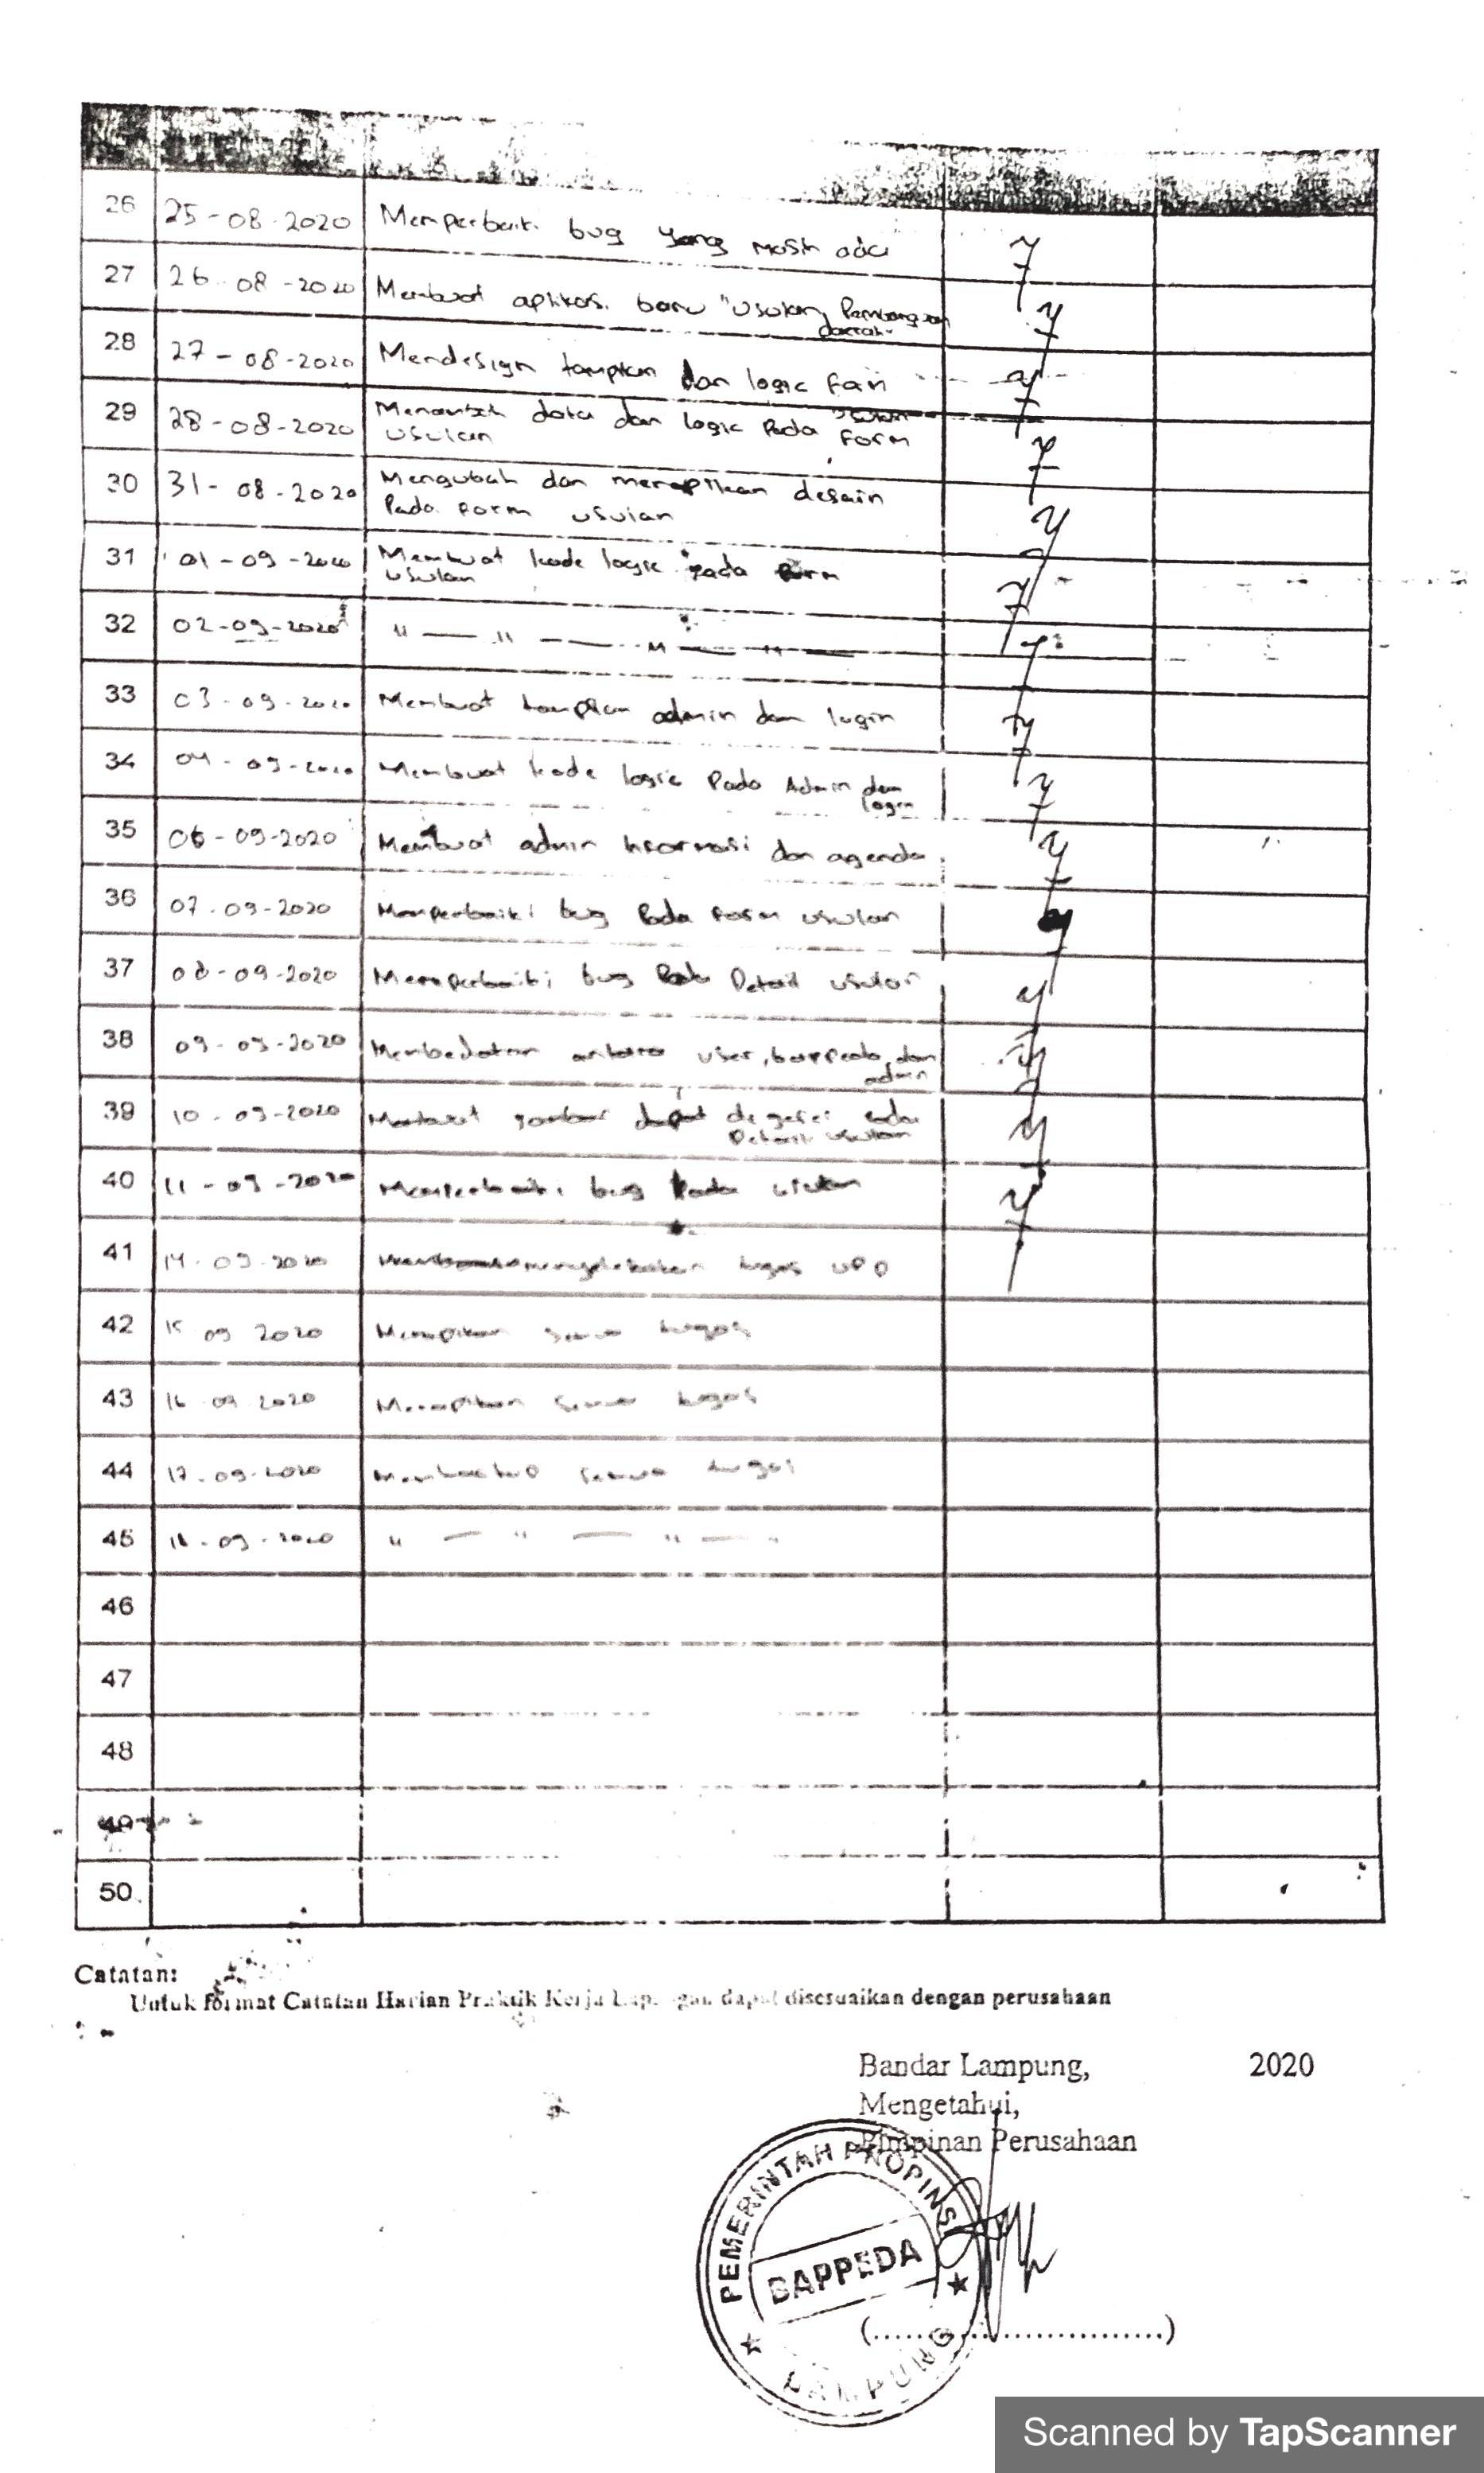 26 25-08-2020 Memperbaiki bug yang masih ada
27 26-08-2020 Membuat aplikasi baru "Usulan Pembangunan
daerah"
28 27-08-2020 Mendesign tampilan dan logic
29 28-08-2020 data dan logic Pada form
usulan
30 31-08-2020 Mengubah dan merapikan desain
Pada form usulan
31 01-09-2020 Membuat kode logic pada form
usulan
32 02-09-2020 " — " — " — " —
33 03-09-2020 Membuat tampilan admin dan login
34 04-09-2020 Membuat kode logic Pada Admin dan
login
35 06-09-2020 Membuat admin informasi dan agenda
36 07-09-2020 Memperbaiki bug Pada form usulan
37 08-09-2020 Memperbaiki bug Pada Detail usulan
38 09-09-2020 Membedakan antara user, bappeda, dan
admin
39 10-09-2020 Membuat gambar dapat di geser pada
Detail usulan
40 11-09-2020 Memperbaiki bug Pada usulan
41 14-09-2020 tugas
42 15 09 2020 Merapikan semua tugas
43 16 09 2020 Merapikan semua tugas
44 17-09-2020 semua tugas
45 18-09-2020 " — " — " — "
46
47
48
49
50
Catatan:
Untuk format Catatan Harian Praktik Kerja Lapangan dapat disesuaikan dengan perusahaan
Bandar Lampung, 2020
Mengetahui,
Pimpinan Perusahaan
PEMERINTAH PROPINSI
BAPPEDA
LAMPUNG
(..............................)
Scanned by TapScanner